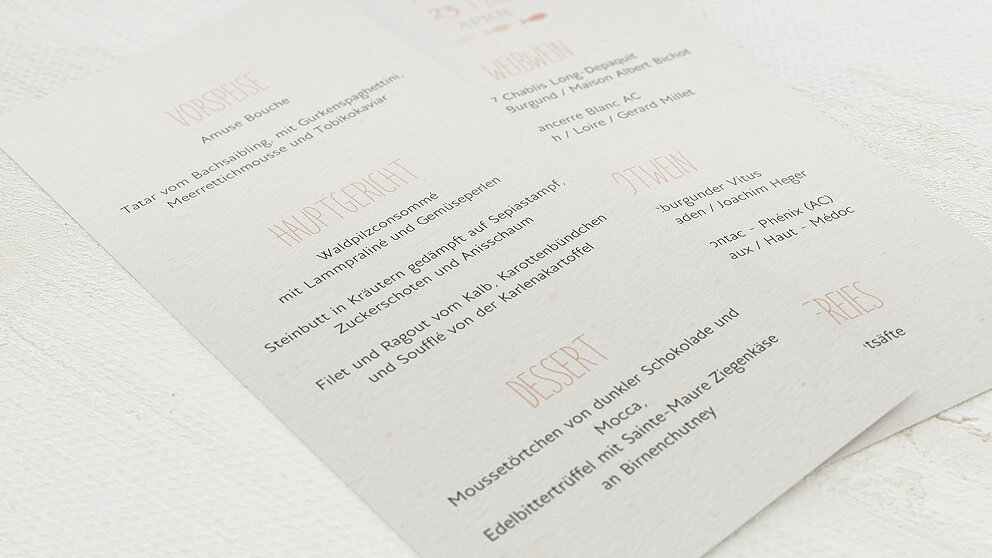 VORSPEISE
Amuse Bouche
Tatar vom Bachsaibling, mit Gurkenspaghettini,
Meerrettichmousse und Tobikokaviar
HAUPTGERICHT
Waldpilzconsommé
mit Lammpraliné und Gemüseperlen
Steinbutt in Kräutern gedämpft auf Sepiastampf,
Zuckerschoten und Anisschaum
Filet und Ragout vom Kalb, Karottenbündchen
und Soufflé von der Karlenakartoffel
DESSERT
Moussetörtchen von dunkler Schokolade und
Mocca,
Edelbittertrüffel mit Sainte-Maure Ziegenkäse
an Birnenchutney
23
APRIL
WEIßWEIN
7 Chablis Long-Depaquit
Burgund / Maison Albert Bichot
ancerre Blanc AC
h / Loire / Gerard Millet
OTWEIN
burgunder Vitus
aden / Joachim Heger
ontac - Phénix (AC)
aux / Haut - Médoc
-REIES
tsäfte